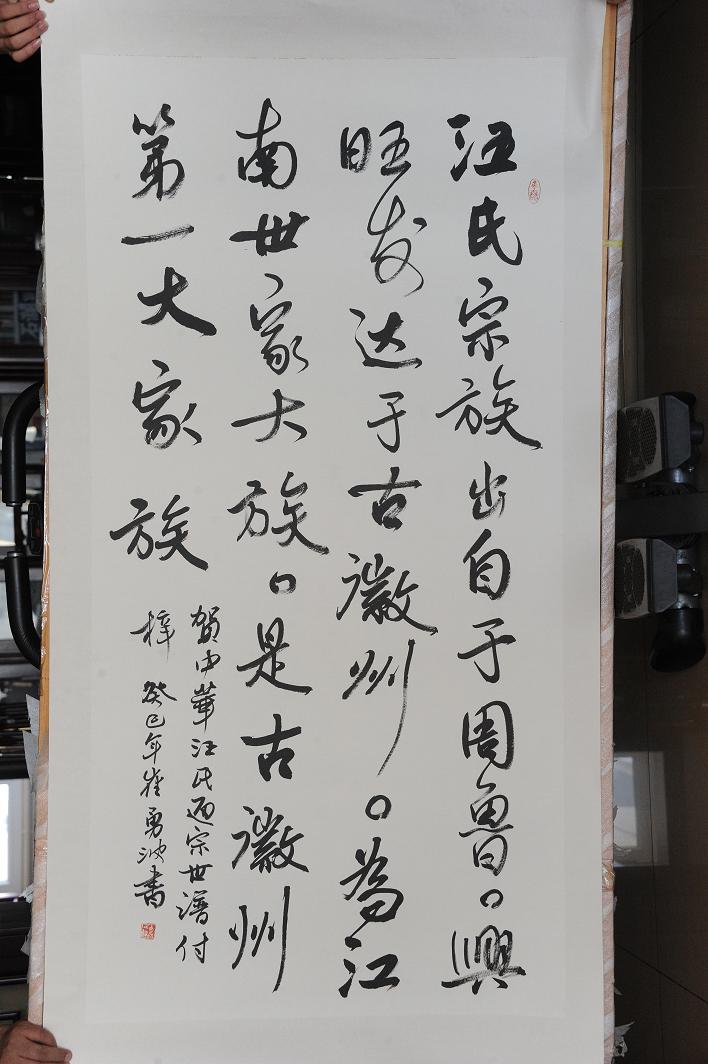 汪氏宗族出自于周魯。興
旺发达于古徽州。為江
南世家大族。是古徽州
第一大家族
賀中華汪氏通宗世譜付
梓 癸巳年崔勇波書